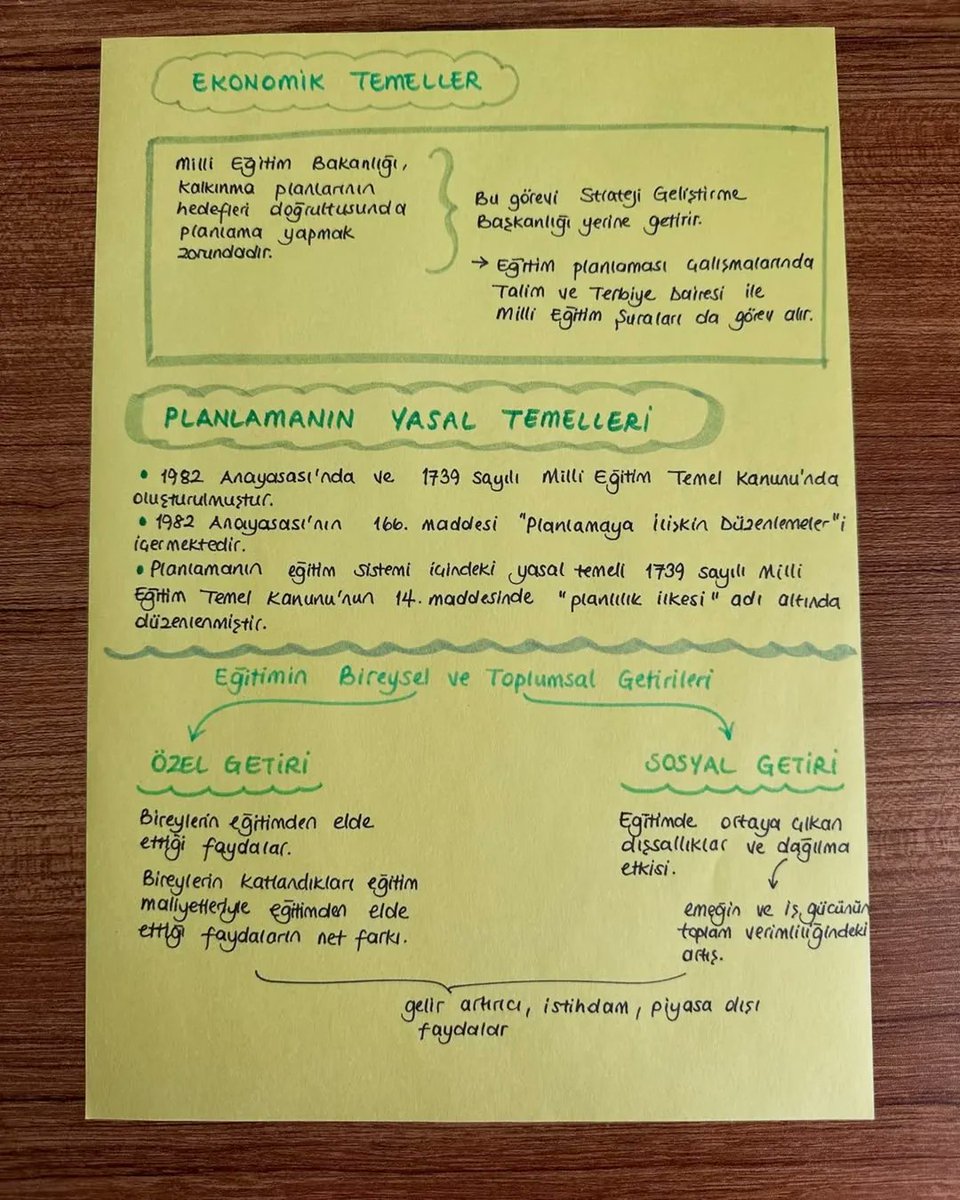 EKONOMİK TEMELLER
Milli Eğitim Bakanlığı,
kalkınma planlarının
hedefleri doğrultusunda
planlama yapmak
zorundadır.
Bu görevi Strateji Geliştirme
Başkanlığı yerine getirir.
→ Eğitim planlaması çalışmalarında
Talim ve Terbiye Dairesi ile
Milli Eğitim Şuraları da görev alır.
PLANLAMANIN YASAL TEMELLERİ
• 1982 Anayasası'nda ve 1739 sayılı Milli Eğitim Temel Kanunu'nda
oluşturulmuştur.
• 1982 Anayasası'nın 166. maddesi "Planlamaya İlişkin Düzenlemeler"i
içermektedir.
• Planlamanın eğitim sistemi içindeki yasal temeli 1739 sayılı Milli
Eğitim Temel Kanunu'nun 14. maddesinde "planlılık ilkesi" adı altında
düzenlenmiştir.
Eğitimin Bireysel ve Toplumsal Getirileri
ÖZEL GETİRİ
Bireylerin eğitimden elde
ettiği faydalar.
Bireylerin katlandıkları eğitim
maliyetleriyle eğitimden elde
ettiği faydaların net farkı.
SOSYAL GETİRİ
Eğitimde ortaya çıkan
dışsallıklar ve dağılma
etkisi.
emeğin ve iş gücünün
toplam verimliliğindeki
artış.
gelir artırıcı, istihdam, piyasa dışı
faydalar